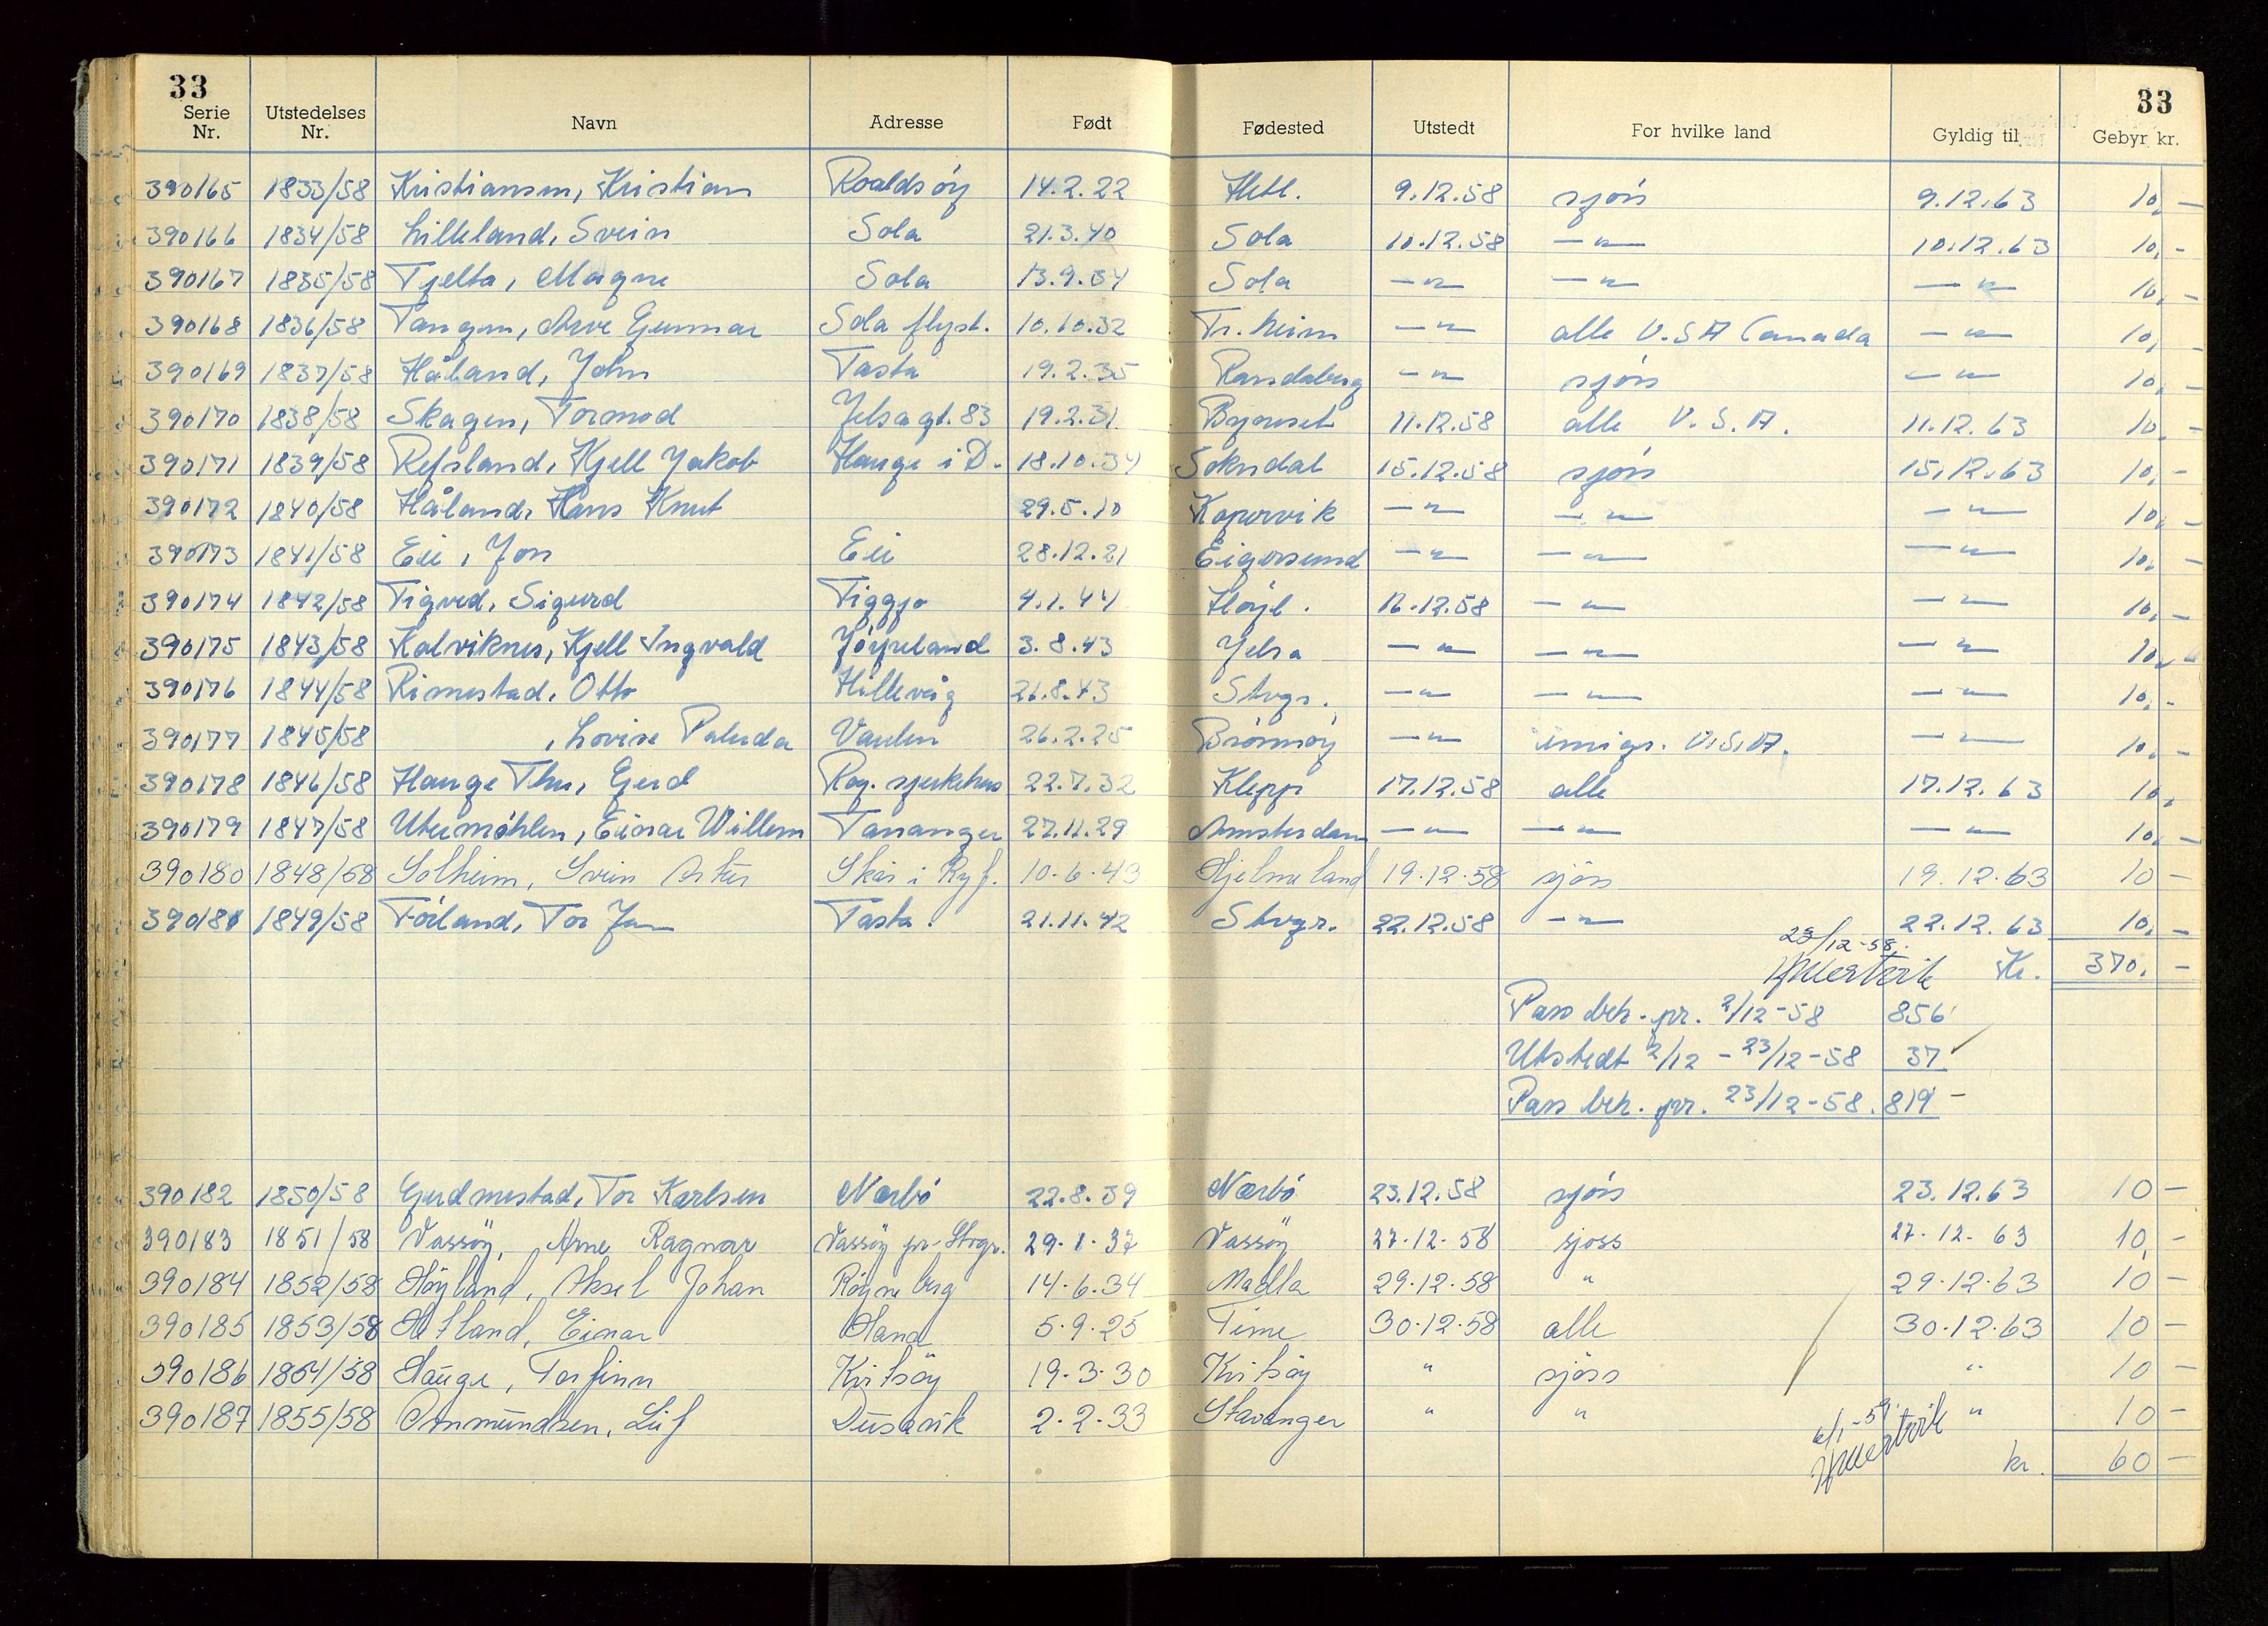 33 33
Serie Nr. Utstedelses Nr. Navn Adresse Født Fødested Utstedt For hvilke land Gyldig til Gebyr kr.
390165 1833/58 Kristiansen, Kristian Roaldsöy 14.2.22 Hetl. 9.12.58 sjøis 9.12.63 10,-
390166 1834/58 Lilleland, Svein Sola 21.3.40 Sola 10.12.58 -"- 10.12.63 10,-
390167 1835/58 Tjelta, Magne Sola 13.9.34 Sola -"- -"- -"- 10,-
390168 1836/58 Tangen, Arve Gunnar Sola flypl. 10.10.32 Tr.heim -"- alle U.S.A Canada -"- 10,-
390169 1837/58 Håland, John Tasta 19.2.35 Randaberg -"- sjøis -"- 10,-
390170 1838/58 Skagen, Tormod Jelsagt. 83 19.2.31 11.12.58 alle U.S.A. 11.12.63 10,-
390171 1839/58 Refsland, Kjell Jakob Hauge i D. 18.10.34 Sokndal 15.12.58 sjøis 15.12.63 10,-
390172 1840/58 Håland, Hans Knut 29.5.10 Kopervik -"- -"- -"- 10,-
390173 1841/58 Eie, Jon Eie 28.12.21 Eigersund -"- -"- -"- 10,-
390174 1842/58 Tigved, Sigurd Figgjo 4.1.44 Høyl. 16.12.58 -"- -"- 10,-
390175 1843/58 Kalviknes, Kjell Ingvald Jörpeland 3.8.43 Jelsa -"- -"- -"- 10,-
390176 1844/58 Rimestad, Otto Hillevåg 26.8.43 Stvgr. -"- -"- -"- 10,-
390177 1845/58 , Lovise Paluda Vaulen 26.2.25 Brönnöy -"- emigr. U.S.A. -"- 10,-
390178 1846/58 Hauge Thu, Gerd Rog. sjukehus 22.7.32 Klepp 17.12.58 alle 17.12.63 10,
390179 1847/58 Utermöhlen, Einar Willem Tananger 27.11.29 Amsterdam -"- -"- -"- 10,-
390180 1848/58 Solheim, Svein Artur Skår i Ryf. 10.6.43 Hjelmeland 19.12.58 sjöss 19.12.63 10 -
390181 1849/58 Förland, Tor Jan Tasta. 21.11.42 Stvgr. 22.12.58 -"- 22.12.63 10,-
23/12-58. Kr. 370,-
Pass beh. pr. 2/12-58 856
Utstedt 2/12 - 23/12-58 37
Pass beh. pr. 23/12-58. 819 -
390182 1850/58 Gjerdmestad, Tor Karlsen Nærbö 22.8.39 Nærbö 23.12.58 sjøis 23.12.63 10 -
390183 1851/58 Vassöy, Arne Ragnar Vassöy pr. Stvgr. 29.1.37 Vassöy 27.12.58 sjøss 27.12.63 10,-
390184 1852/58 Höyland, Aksel Johan Röyneberg 14.6.34 Madla 29.12.58 " 29.12.63 10 -
390185 1853/58 Hetland, Einar Hana 5.9.25 Time 30.12.58 alle 30.12.63 10 -
390186 1854/58 Hauge, Torfinn Kvitsöy 19.3.30 Kvitsöy " sjöss " 10 -
390187 1855/58 Ommundsen, Leif Dusavik 2.2.33 Stavanger " " " 10 -
6/1-59 kr. 60 -